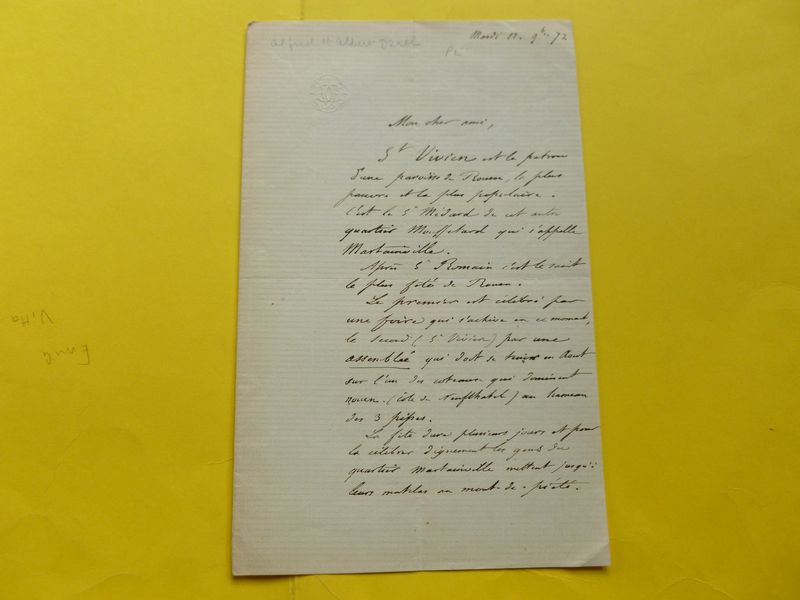 Alfred et Albert Darcel
PL
Mardi 12. 9bre. 72
Mon cher ami,
St Vivien est le patron
d'une paroisse de Rouen, la plus
pauvre et la plus populaire.
C'est le St Médard de cet autre
quartier Mouffetard qui s'appelle
Martainville.
Après St Romain c'est le saint
le plus fêté de Rouen.
Le premier est célébré par
une foire qui s'achève en ce moment,
le second (St Vivien) par une
assemblée qui doit se tenir en Aout
sur l'un des coteaux qui dominent
Rouen. (côte de Neufchatel) au hameau
des 3 pipes.
La fête dure plusieurs jours et pour
la célébrer dignement les gens du
quartier Martainville mettent jusqu'à
leurs matelas au mont-de-piété.